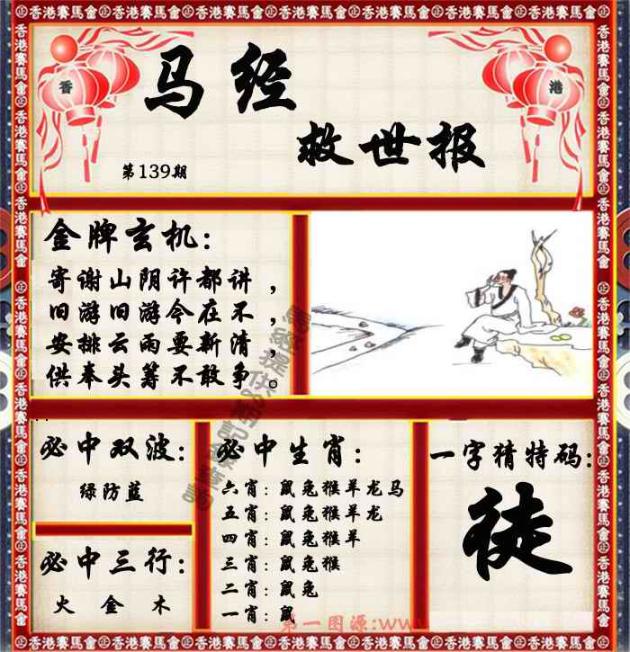 香 港
马经
救世报
第139期
金牌玄机：
寄谢山阴许都讲，
旧游旧游今在不，
安排云雨要新清，
供奉头筹不敢争。
必中双波：
绿防蓝
必中三行：
火 金 木
必中生肖：
六肖：鼠兔猴羊龙马
五肖：鼠兔猴羊龙
四肖：鼠兔猴羊
三肖：鼠兔猴
二肖：鼠兔
一肖：鼠
一字猜特码：
徒
第一图源:www
香港賽馬會